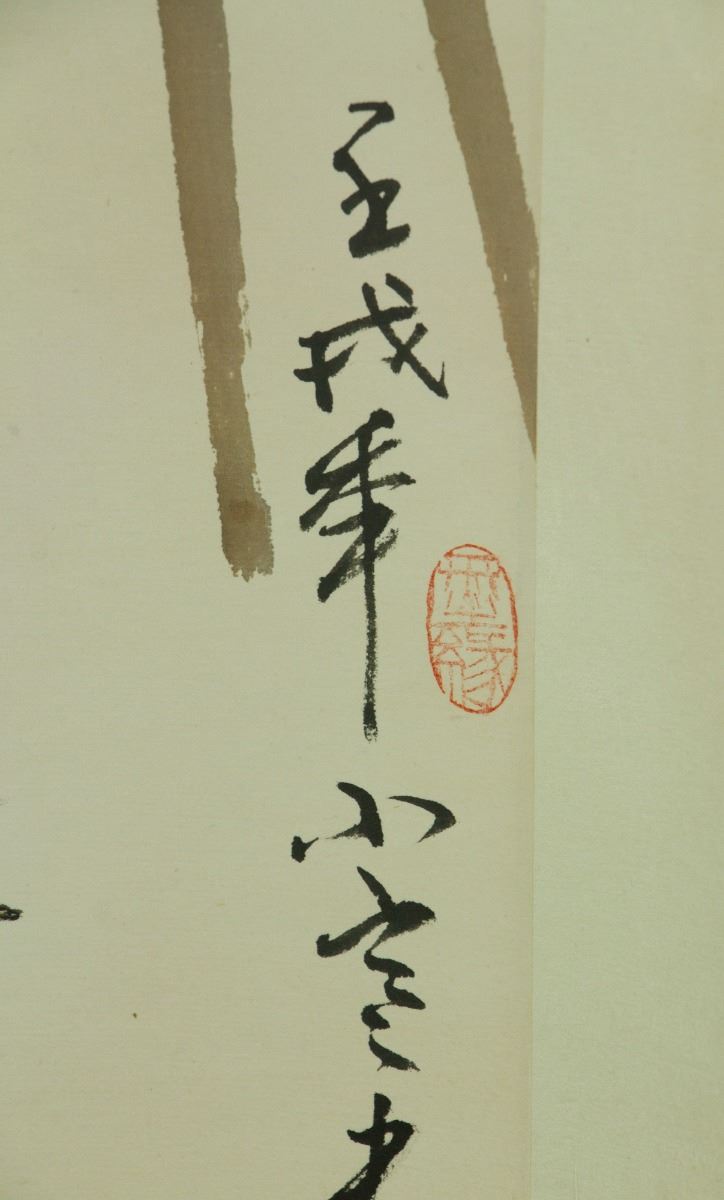 壬戌年小寒